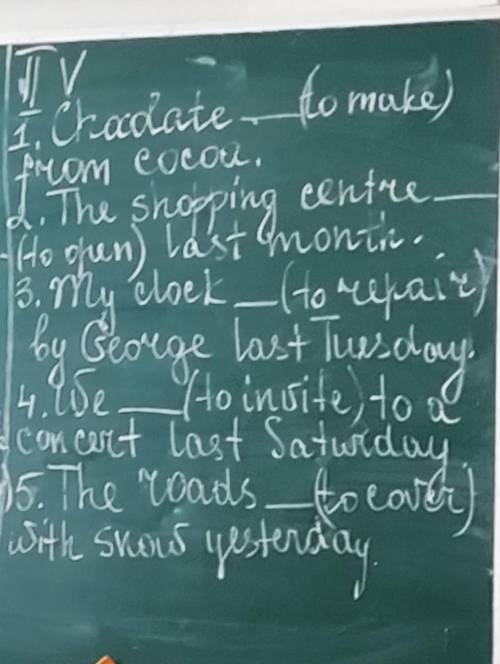 II V
1. Chocolate __ (to make)
from cocoa.
2. The shopping centre __
(to open) last month.
3. My clock __ (to repair)
by George last Tuesday.
4. We __ (to invite) to a
concert last Saturday.
5. The roads __ (to cover)
with snow yesterday.